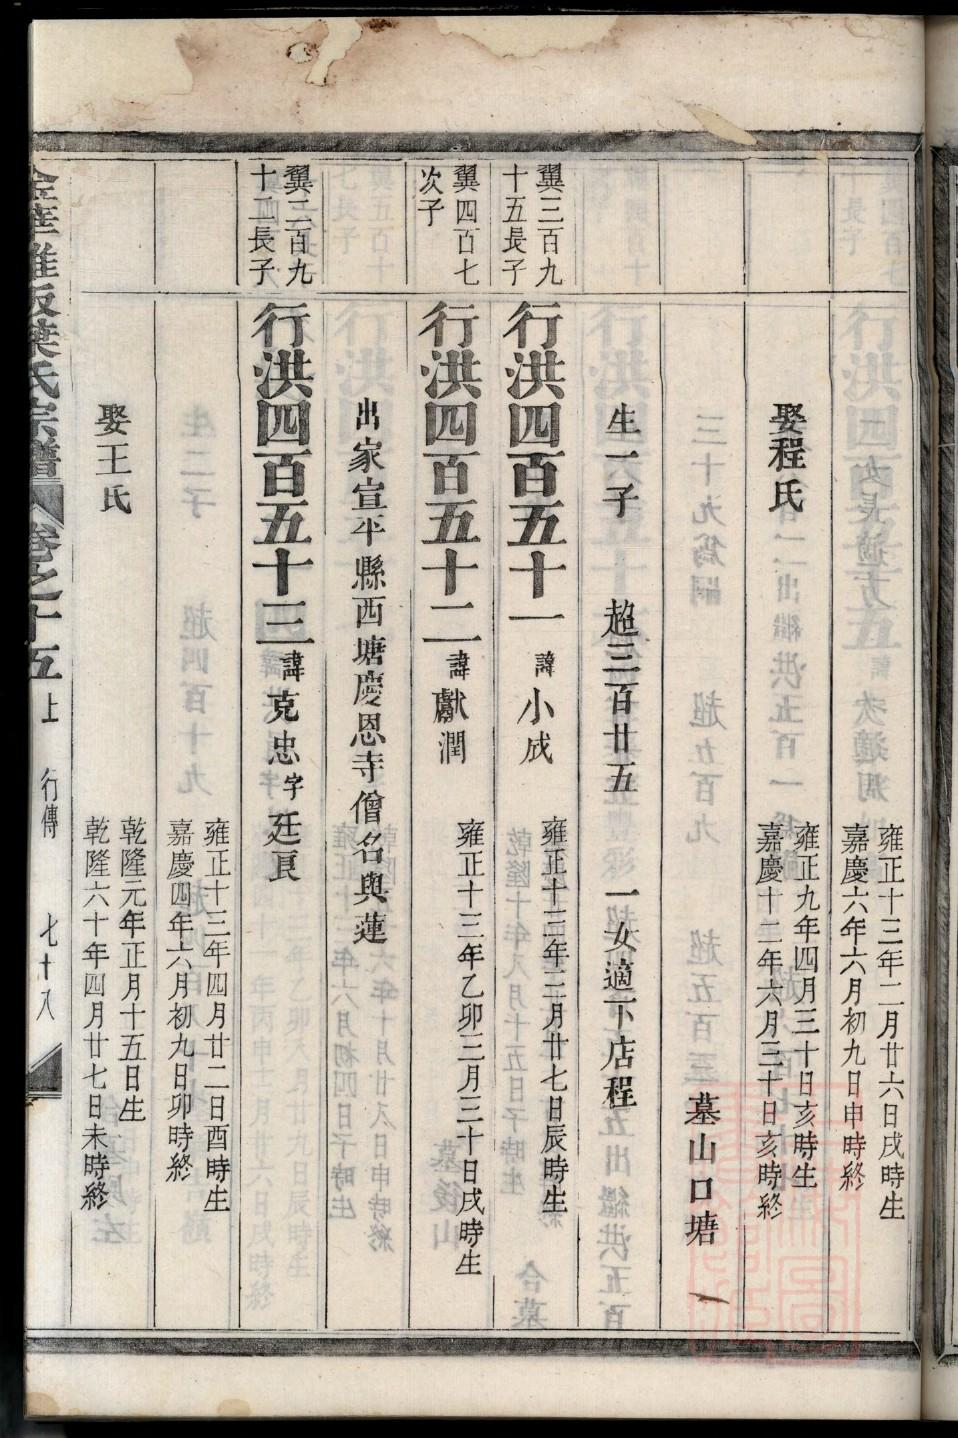 雍正十三年二月廿六日戌時生
嘉慶六年六月初九日申時終
娶程氏
雍正九年四月三十日亥時生
嘉慶十二年六月三十日亥時終
墓山口塘
生一子 超三百廿五 一女適下店程
翼三百九十五長子
行洪四百五十一 諱小成 雍正十三年二月廿七日辰時生
翼四百七次子
行洪四百五十二 諱獻潤 雍正十三年乙卯三月三十日戌時生
出家宣平縣西塘慶恩寺僧名與蓮
翼二百九十二長子
行洪四百五十三 諱克忠字廷良
雍正十三年四月廿二日酉時生
嘉慶四年六月初九日卯時終
娶王氏
乾隆元年正月十五日生
乾隆六十年四月廿七日未時終
葉氏宗譜 卷之十五 上 行傳 七十八